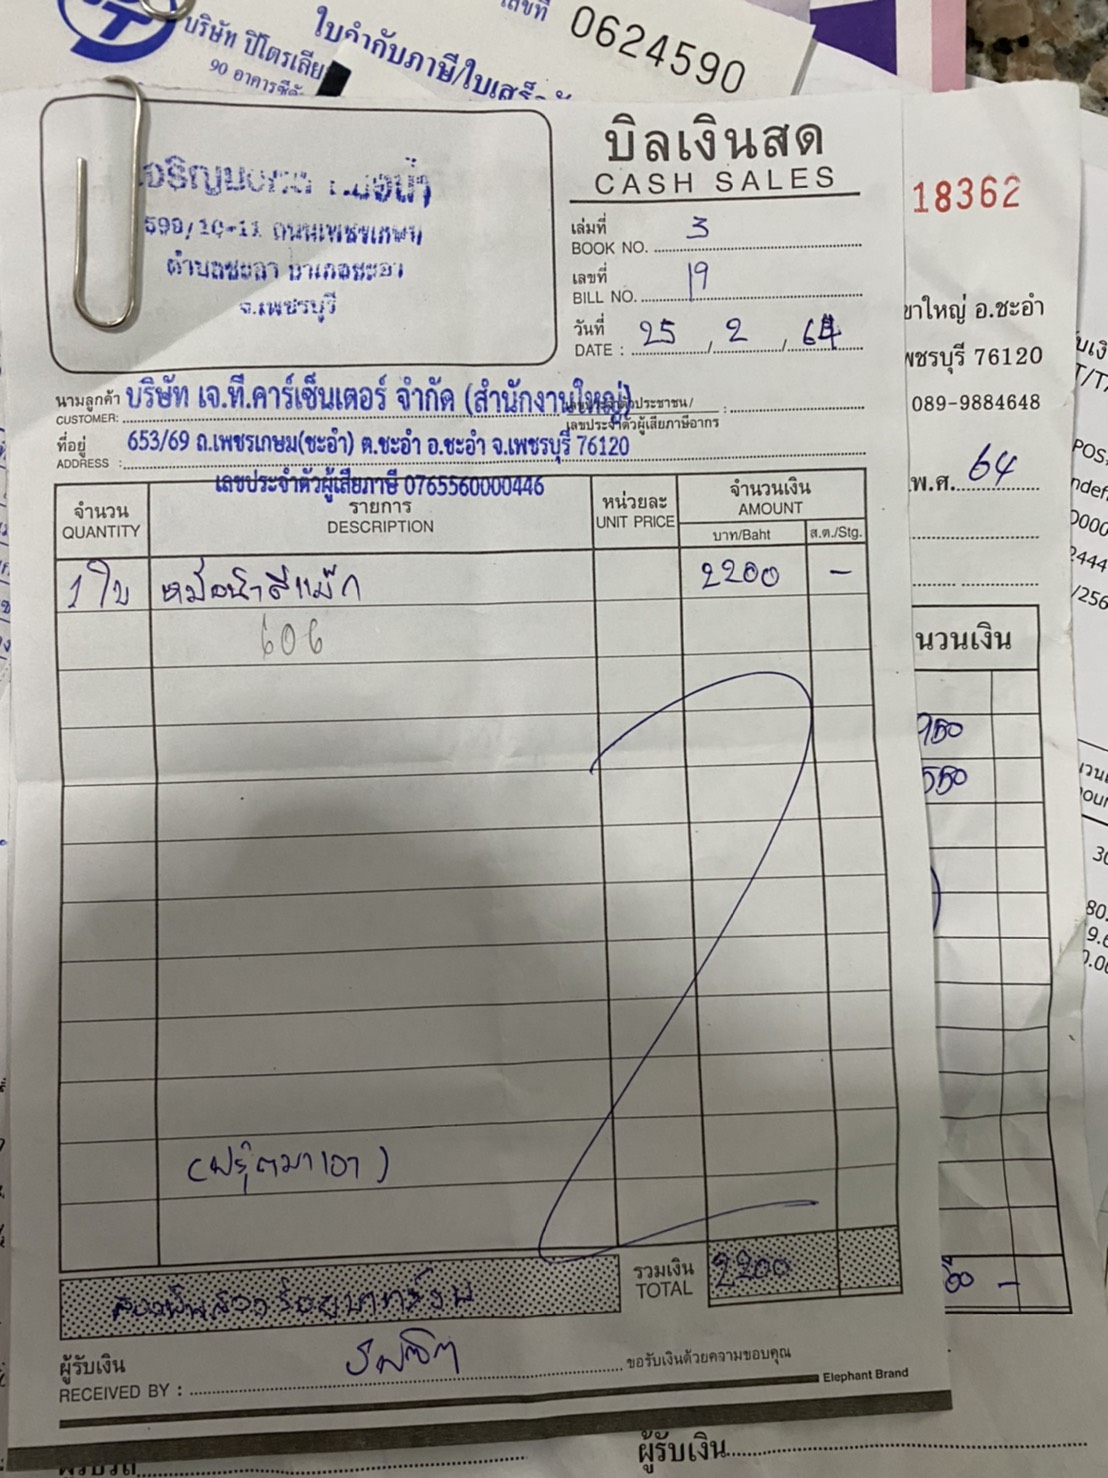 เลขที่ 0624590
ใบกำกับภาษี/ใบเสร็จ
บริษัท ปิโตรเลีย
90 อาคารซี
บิลเงินสด
CASH SALES
18362
590/10-11 ถนนเพชรเกษม
ตำบลชะอำ อำเภอชะอำ
จ.เพชรบุรี
เล่มที่
BOOK NO. 3
เลขที่
BILL NO. 19
วันที่
DATE : 25 / 2 / 64
นามลูกค้า บริษัท เจ.ที.คาร์เซ็นเตอร์ จำกัด (สำนักงานใหญ่)
CUSTOMER:
เลขประจำตัวประชาชน/
เลขประจำตัวผู้เสียภาษีอากร :
ที่อยู่ 653/69 ถ.เพชรเกษม(ชะอำ) ต.ชะอำ อ.ชะอำ จ.เพชรบุรี 76120
ADDRESS :
เลขประจำตัวผู้เสียภาษี 0765560000446
จำนวน รายการ หน่วยละ จำนวนเงิน
QUANTITY DESCRIPTION UNIT PRICE AMOUNT
บาท/Baht ส.ต./Stg.
1 ใบ หม้อน้ำดีแม็ก 2200 -
606
(ฟรุ๊ตมาเอา)
รวมเงิน 2200
TOTAL
สองพันสองร้อยบาทถ้วน
ผู้รับเงิน
RECEIVED BY :
ขอรับเงินด้วยความขอบคุณ
Elephant Brand
ขาใหญ่ อ.ชะอำ
เพชรบุรี 76120
089-9884648
พ.ศ. 64
นวนเงิน
950
550
ผู้รับเงิน